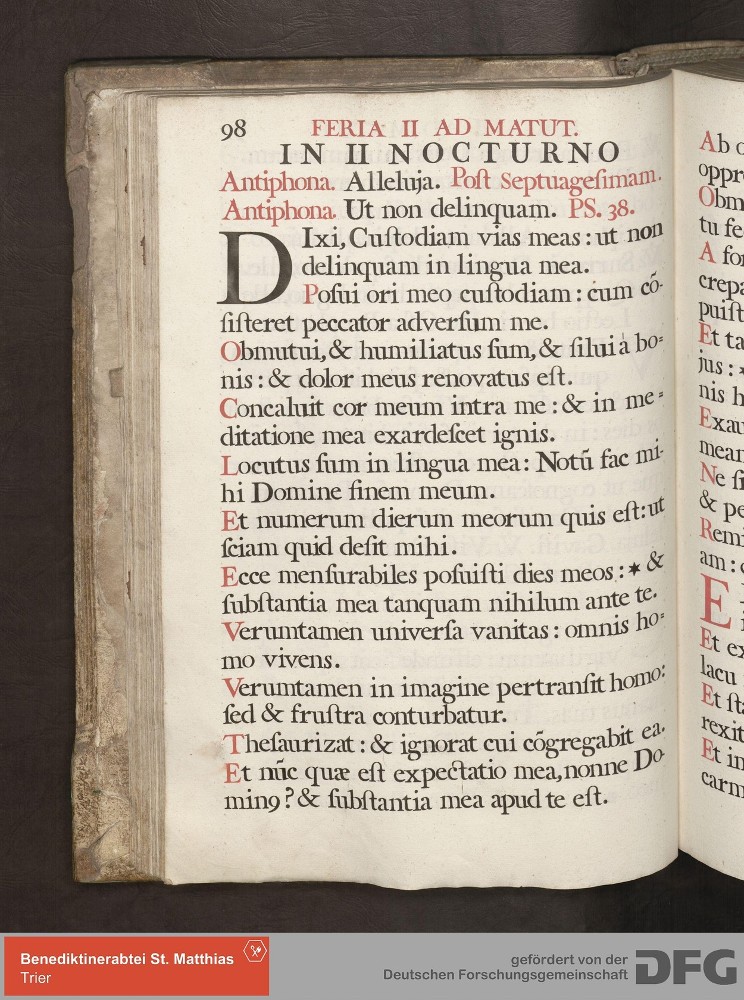 98 FERIA II AD MATUT.
IN II NOCTURNO
Antiphona. Alleluja. Poſt Septuageſimam.
Antiphona. Ut non delinquam. PS. 38.
DIxi, Cuſtodiam vias meas : ut non
delinquam in lingua mea.
Poſui ori meo cuſtodiam : cum cõ-
ſiſteret peccator adverſum me.
Obmutui, & humiliatus ſum, & ſilui à bo=
nis : & dolor meus renovatus eſt.
Concaluit cor meum intra me : & in me=
ditatione mea exardeſcet ignis.
Locutus ſum in lingua mea : Notũ fac mi-
hi Domine finem meum.
Et numerum dierum meorum quis eſt : ut
ſciam quid deſit mihi.
Ecce menſurabiles poſuiſti dies meos : * &
ſubſtantia mea tanquam nihilum ante te.
Verumtamen univerſa vanitas : omnis ho=
mo vivens.
Verumtamen in imagine pertranſit homo:
ſed & fruſtra conturbatur.
Theſaurizat : & ignorat cui cõgregabit ea.
Et nũc quæ eſt expectatio mea, nonne Do-
minꝰ ? & ſubſtantia mea apud te eſt.
Ab
tu
A
Et
jus : *
nis
Ne
& 
am :
E
Et
lacu
Et
Et
Benediktinerabtei St. Matthias
Trier
gefördert von der
Deutschen Forschungsgemeinschaft
DFG